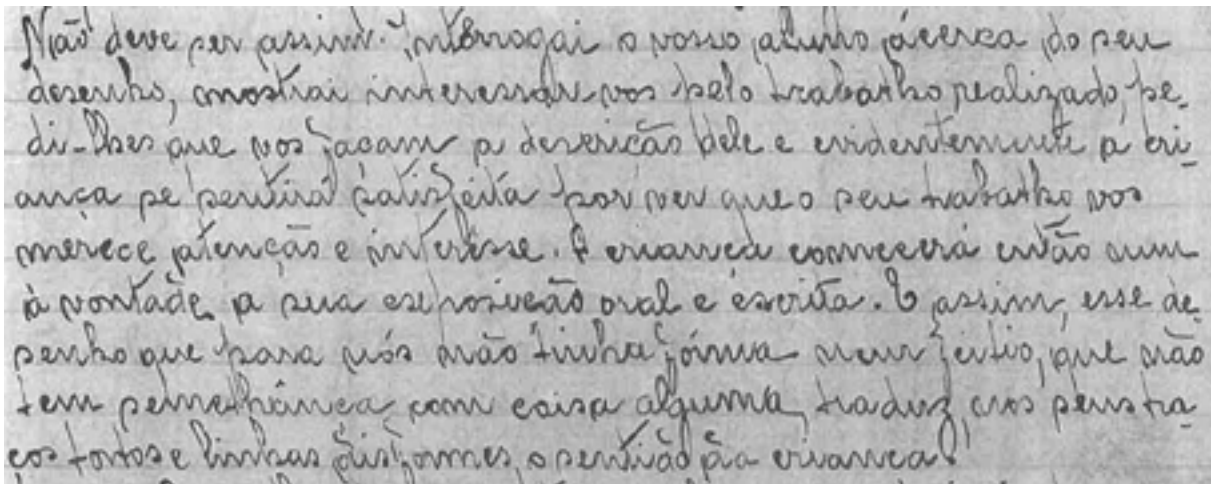 Não deve ser assim. Interrogai o vosso aluno ácerca do seu
desenho, mostrai interessar-vos pelo trabalho realizado, pe-
di-lhes que vos façam a descrição dele e evidentemente a cri-
ança se sentirá satisfeita por ver que o seu trabalho vos
merece atenção e interêsse. A criança começará então num
à vontade, a sua exposição oral e escrita. E assim, esse de-
senho que para nós não tinha fórma nem feitio, que não
tem semelhânça com coisa alguma, traduz, nos seus tra-
ços tortos e linhas disformes, o sentido da criança!